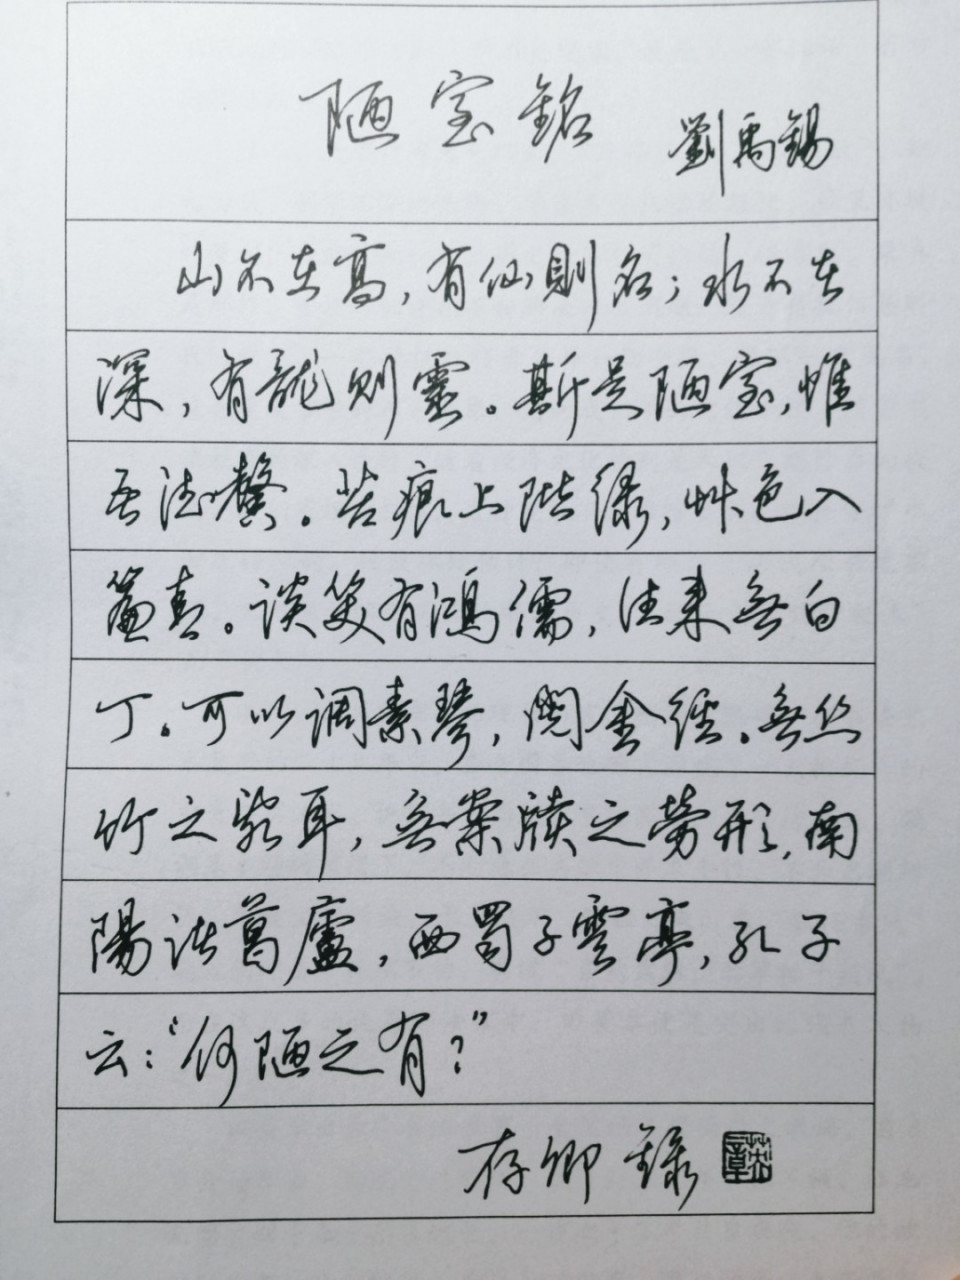 陋室銘 劉禹錫
山不在高，有仙則名；水不在
深，有龍则靈。斯是陋室，惟
吾德馨。苔痕上階绿，艸色入
簾青。谈笑有鴻儒，往来無白
丁。可以调素琴，閱金经。無丝
竹之亂耳，無案牍之勞形，南
陽诸葛廬，西蜀子雲亭，孔子
云：“何陋之有？”
存卿録